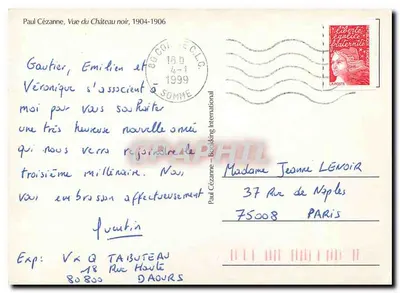 Paul Cézanne, Vue du Château noir, 1904-1906
Gautier, Emilien et
Véronique s'associent à
moi pour vous souhaiter
une très heureuse nouvelle année
qui nous verra rejoindre le
troisième millénaire. Nous
vous embrassons affectueusement
Quentin
Exp: V & Q TABUTEAU
18 Rue Haute
80800 DAOURS
80 CORBIE C.L.C.
18 H
4-1
1999
SOMME
liberté
égalité
fraternité
Paul Cézanne – International
Madame Jeanne LENOIR
37 Rue de Naples
75008 PARIS